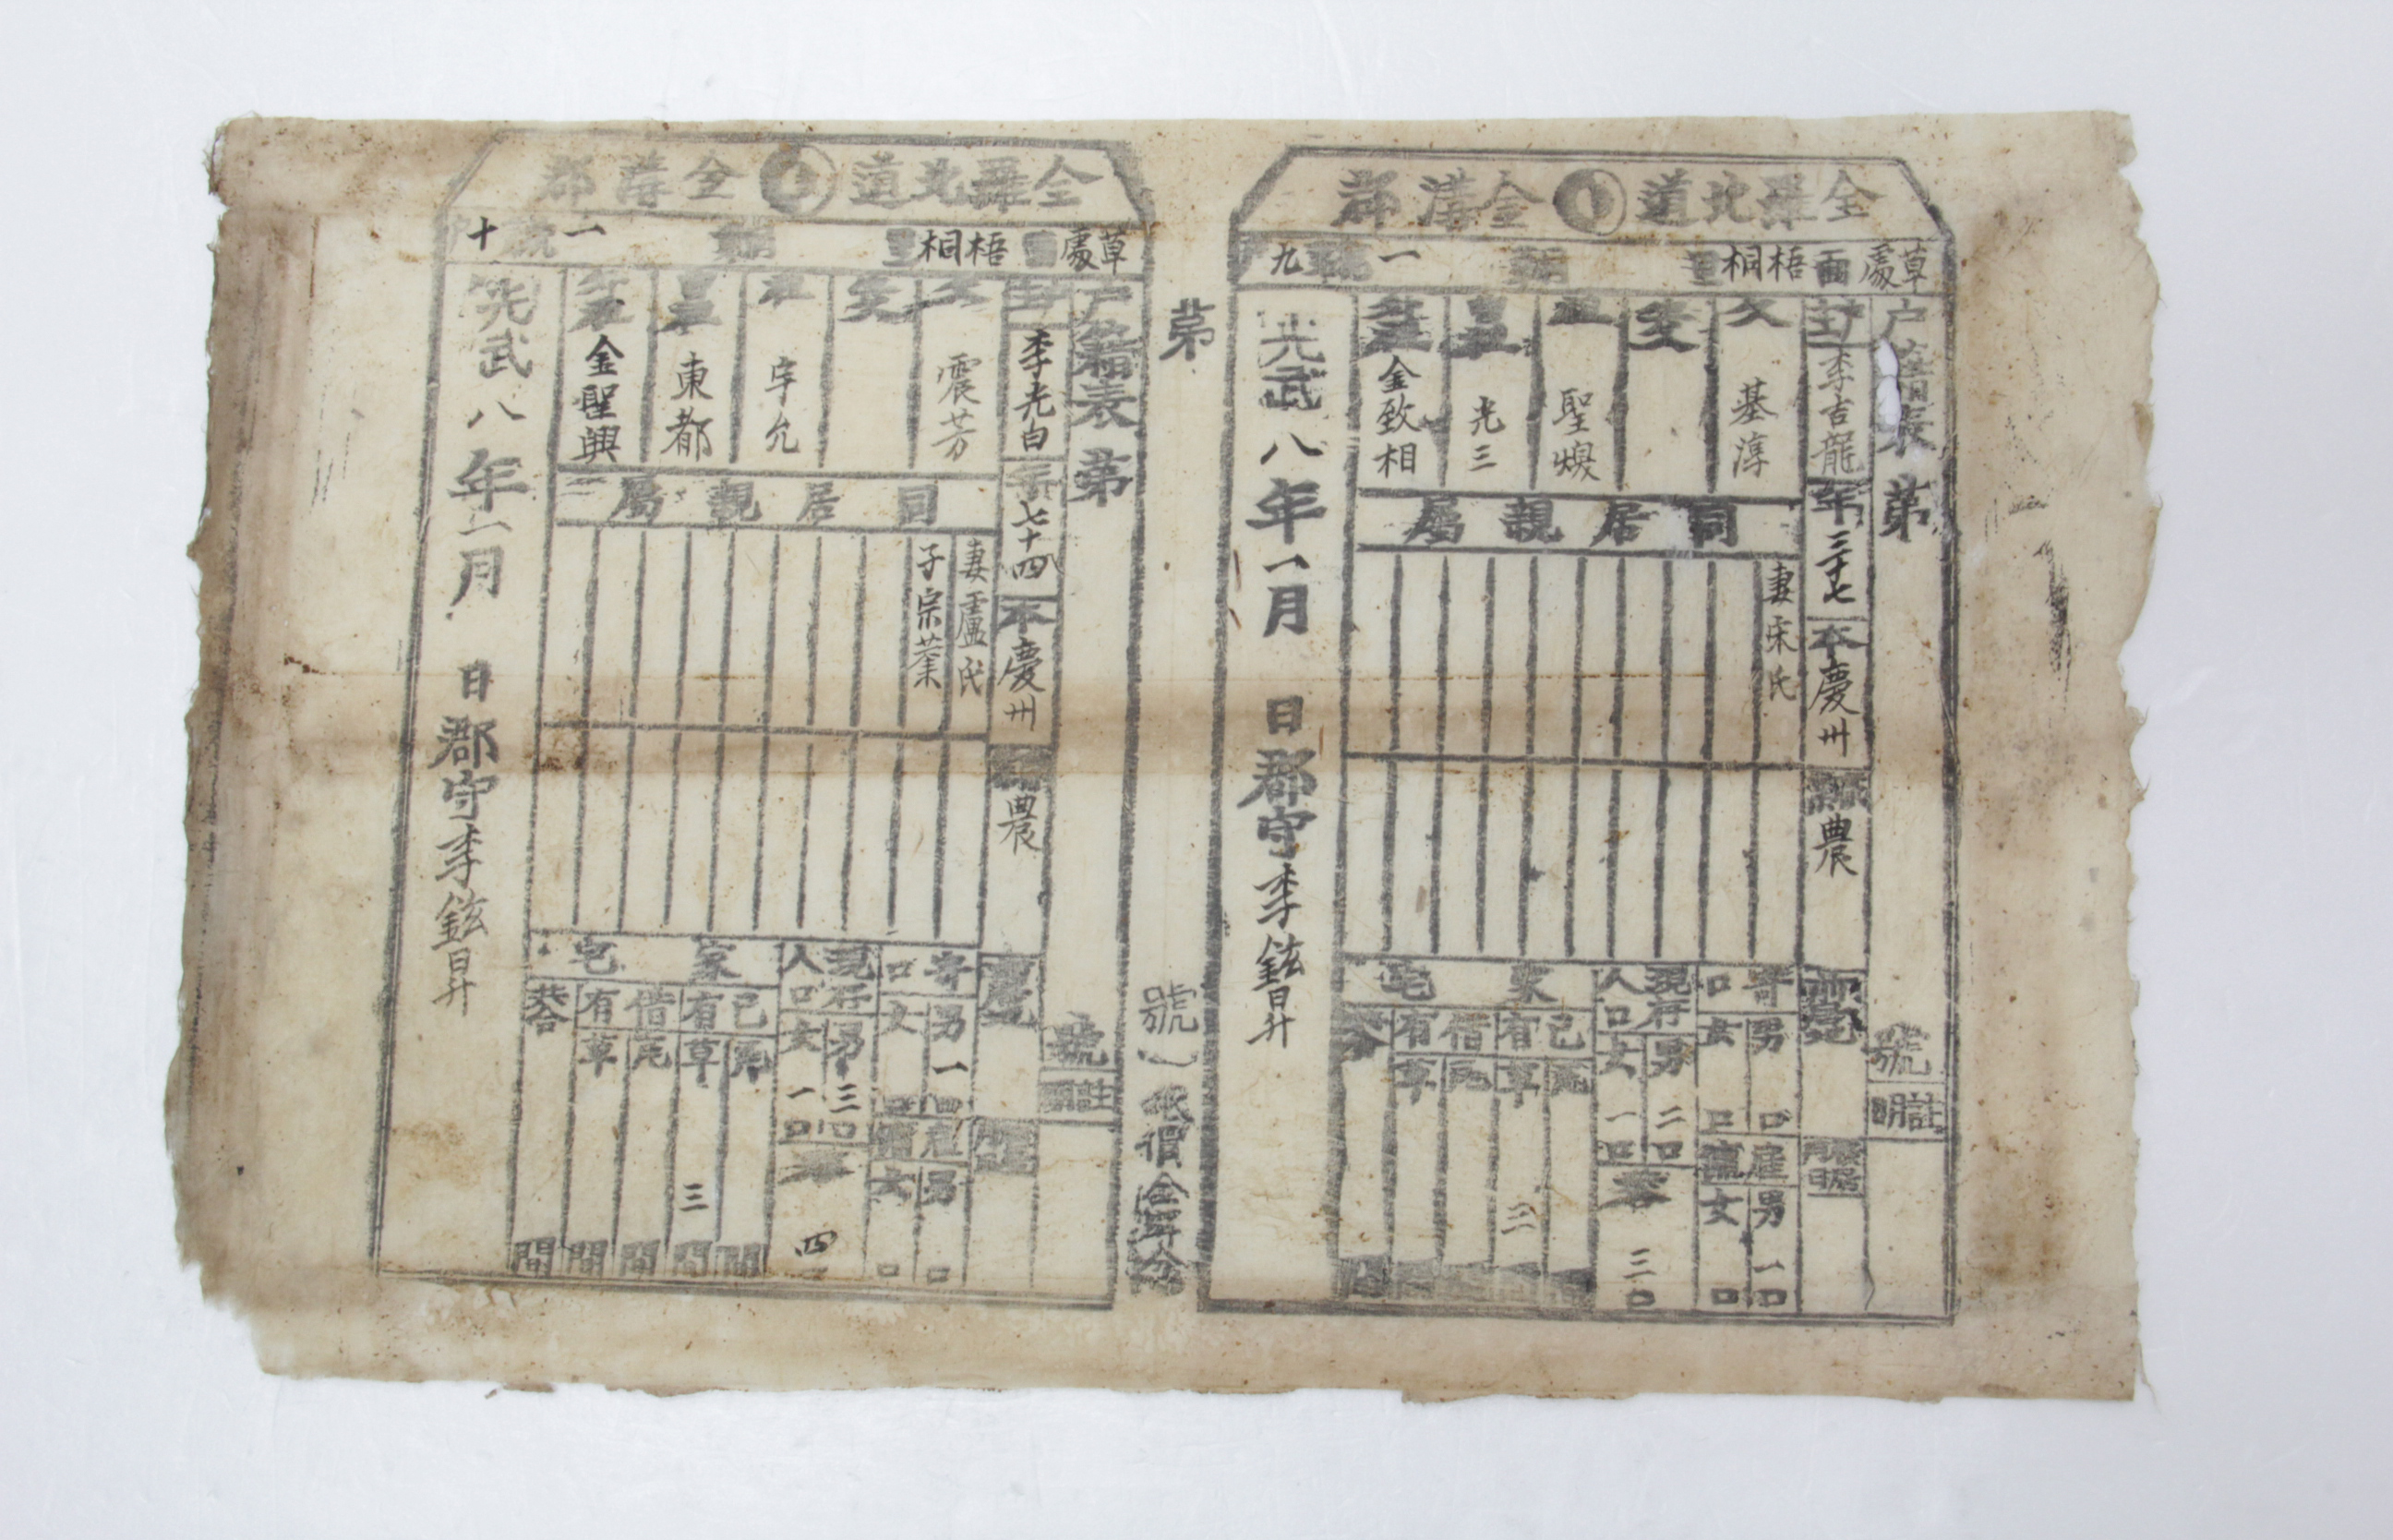 全羅北道 全溝郡
草處面 梧桐里 第 統 一 號 九
戶籍表 第 號
註明
戶主 李吉龍 年 三十七 本 慶州 職業 農
父 基淳
生父
祖 聖煥
曾祖 光三
外祖 金致相
同居親屬
妻 宋氏
寄口 男 口 女 口
雇傭 男 一口 女 口
現存人口 男 二口 女 一口
共合 三口
家宅
己有 瓦 間 草 三 間
借有 瓦 間 草 間
共合 間
光武八年一月 日 郡守 李鉉日升
第 號 紙價金 分
全羅北道 全溝郡
草處面 梧桐里 一 十
戶籍表 第 號
註明
戶主 李光白 年 七十四 本 慶州 職業 農
父 震芳
生父
祖 宇允
曾祖 東都
外祖 金聖興
同居親屬
妻 盧氏
子 宗業
寄口 男 一口 女 口
雇傭 男 口 女 口
現存人口 男 三口 女 一口
共合 四
家宅
己有 瓦 間 草 三 間
借有 瓦 間 草 間
共合 間
光武八年一月 日 郡守 李鉉日升